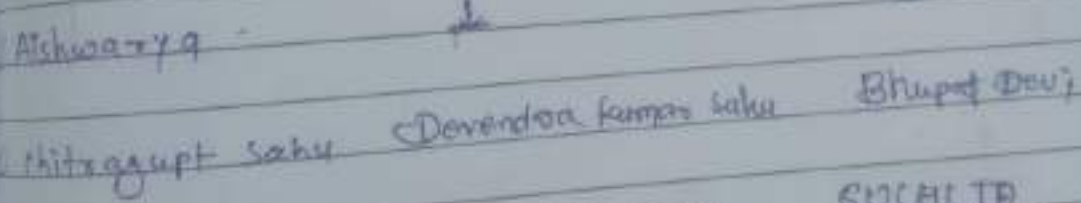 Aishwarya
chitraguupt sahu Devendra kumar sahu Bhupat Devi